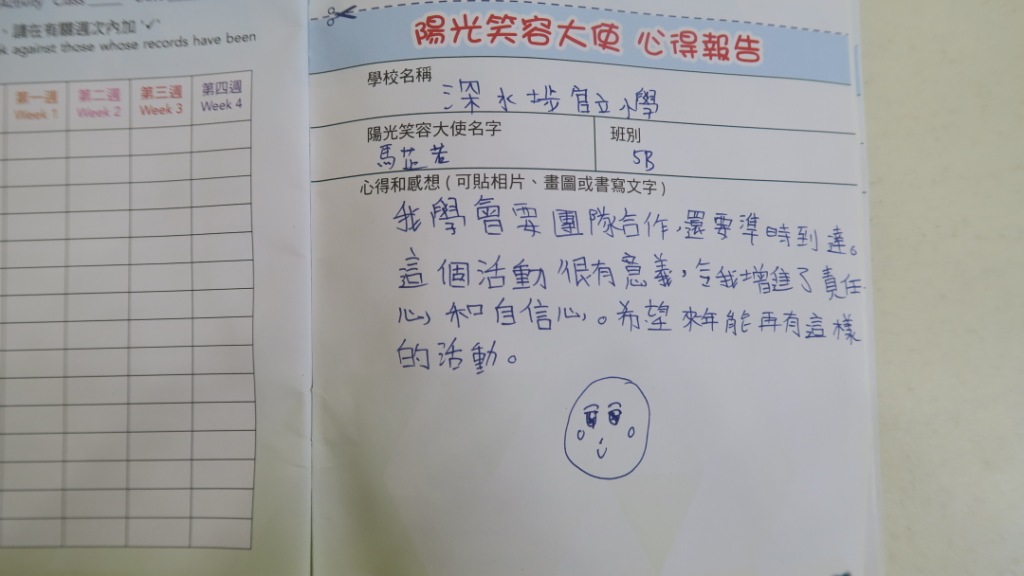 Activity Class
、請在有關週次內加 "✓"
k against those whose records have been
第一週 第二週 第三週 第四週
Week 1 Week 2 Week 3 Week 4
陽光笑容大使 心得報告
學校名稱
深水埗官立小學
陽光笑容大使名字
馬芷若
班別
5B
心得和感想 ( 可貼相片、畫圖或書寫文字 )
我學會要團隊合作,還要準時到達。
這個活動很有意義,令我增進了責任
心和自信心。希望來年能再有這樣
的活動。